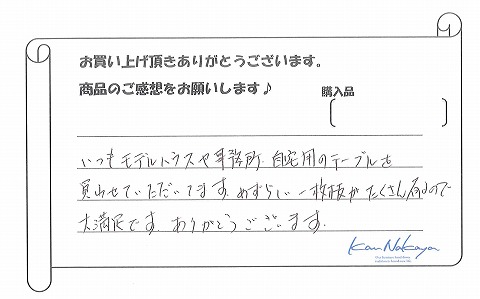 お買い上げ頂きありがとうございます。
商品のご感想をお願いします♪
購入品
いつもモデルハウスや事務所、自宅用のテーブルを
買わせていただいてます。めずらしい一枚板がたくさん有るので
大満足です。ありがとうございます。
Kan Nakaya